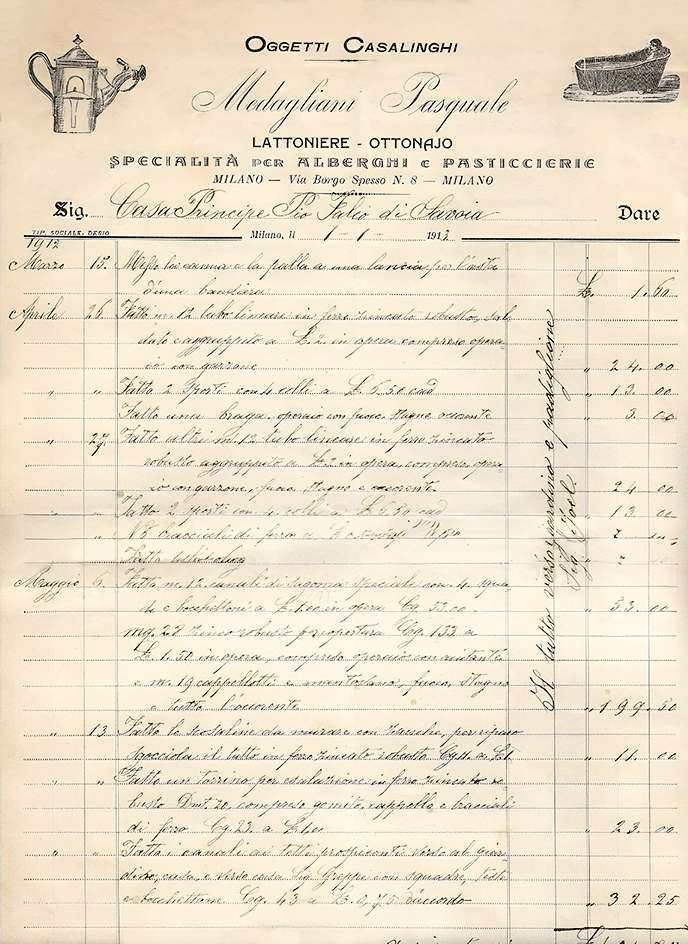 OGGETTI CASALINGHI
Medagliani Pasquale
LATTONIERE - OTTONAJO
SPECIALITÀ PER ALBERGHI E PASTICCIERIE
MILANO — Via Borgo Spesso N. 8 — MILANO
Sig. Casa Principe Pio Falcò di Savoia Dare
TIP. SOCIALE. DESIO
Milano, il 1-1-1913
1912
Marzo 15. Messo la canna e la palla a una lancia per l'asta
d'una bandiera £. 1.60
Aprile 26. Fatto m. 12 tubo lineare in ferro zincato robusto, sal-
dato e aggruppito a £. 2 in opera compreso opera-
io con garzone " 24.00
" " Fatta 2 Sporti con 4 colli a £. 6.50 cad " 13.00
Fatto una braga. operaio con fuoco. stagno ocorente 3.00
" 27. Fatto altri m. 12 tubo lineare in ferro zincato
robusto aggruppito a £. 2 in opera, compreso opera-
io con garzone, fuoco, stagno e ocorente 24 00
" " Fatto 2 sporti con 4 colli a £ 6.50 cad " 13 00
" " N° bracciali di ferro a £
Fatta
Maggio 6. Fatto m. 12 canali di sagoma speciale con 4 squa-
dre e bocchettoni a £. 1.00 in opera Cg. 53.00 " 53.00
mq. 28 zinco robusto per copertura Cg. 133 a
£. 1.50 in opera, compreso operaio con aiutante
e m. 19 cappellotti e fuoco, stagno
e tutto l'ocorente " 199.50
" 13. Fatto le scossaline da murare con zanche, per riparo
sgocciola il tutto in ferro zincato robusto Cg 11. a £. 1 " 11.00
" " Fatta un torrino per esalazione in ferro zincato ro-
busto Dmt. 20, compreso gomito, cappello e bracciali
di ferro Cg. 23. a £ 1.00 " 23.00
" " Fatta i canali ai tetti prospicenti verso al giar-
dino, casa, e verso casa Sig Greppi con squadre, teste
e bocchettone Cg. 43 a £. 0,75 raccordo " 32.25
Il tutto verso giardino e padiglione
Sig.